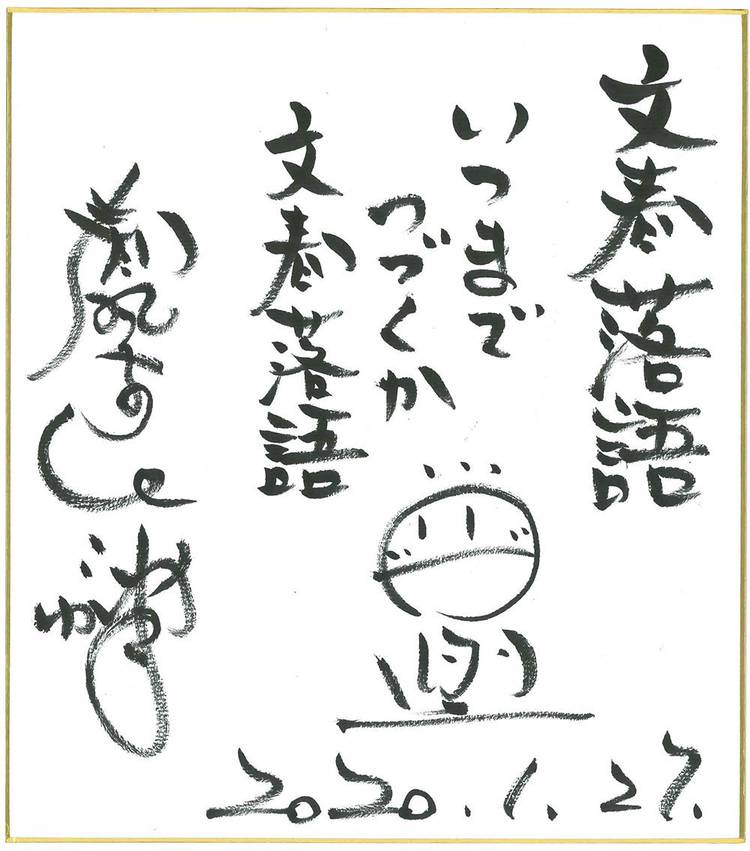 文春落語
いつまで
つづくか
文春落語
2020.1.27.